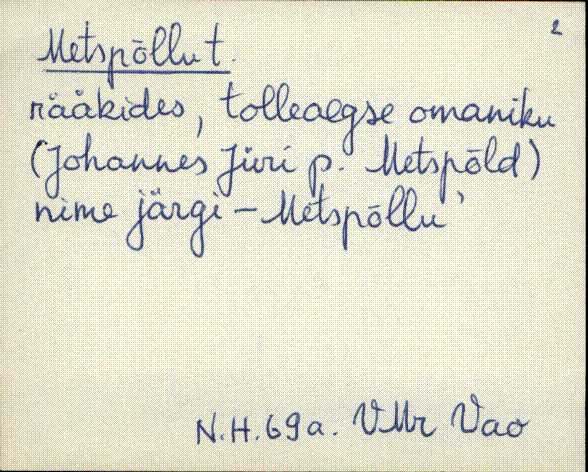 2
Metspõllu t.
rääkides, tolleaegse omaniku
(Johannes Jüri p. Metspõld)
nime järgi – Metspõllu'
N.H. 69a. VMr Vao